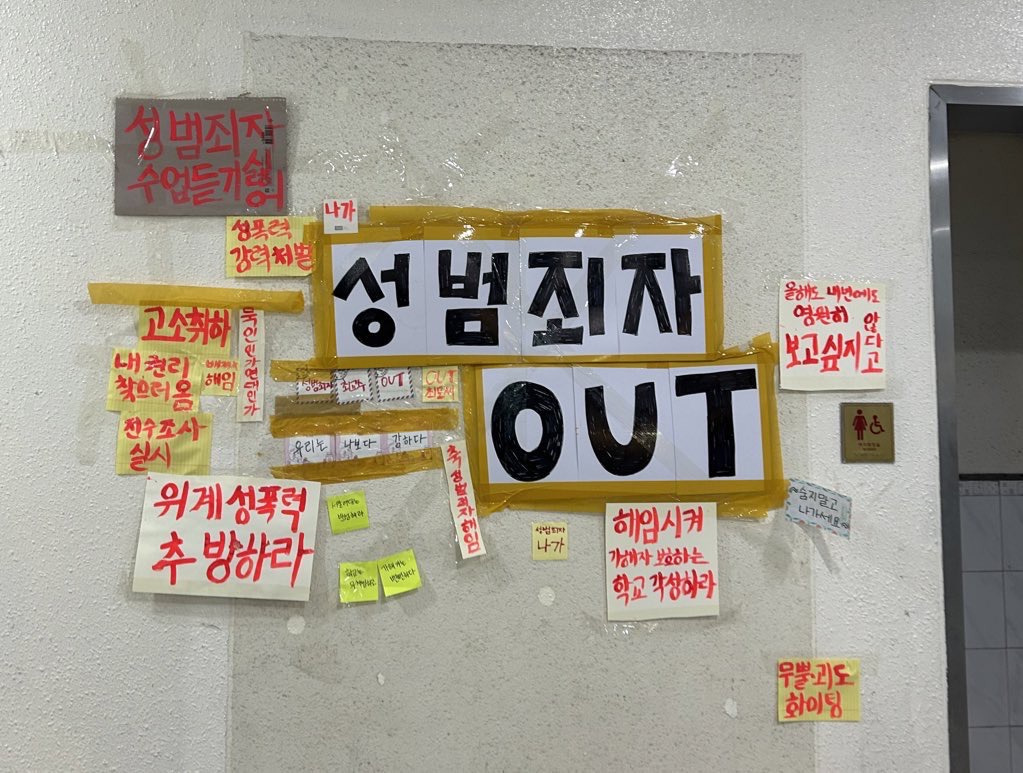 성범죄자
수업듣기싫어
나가
성폭력
강력처벌
성범죄자
OUT
고소취하
내 권리
찾으러 옴
해임
전수조사
실시
성범죄자
최교수
OUT
OUT
우리는
너보다
강하다
축 성범죄자 해임
위계성폭력
추방하라
성범죄자
나가
해임시켜
가해자 보호하는
학교 각성하라
올해도 내년에도
영원히
보고싶지 않다고
숨지말고
나가세요
무뿔·괴도
화이팅